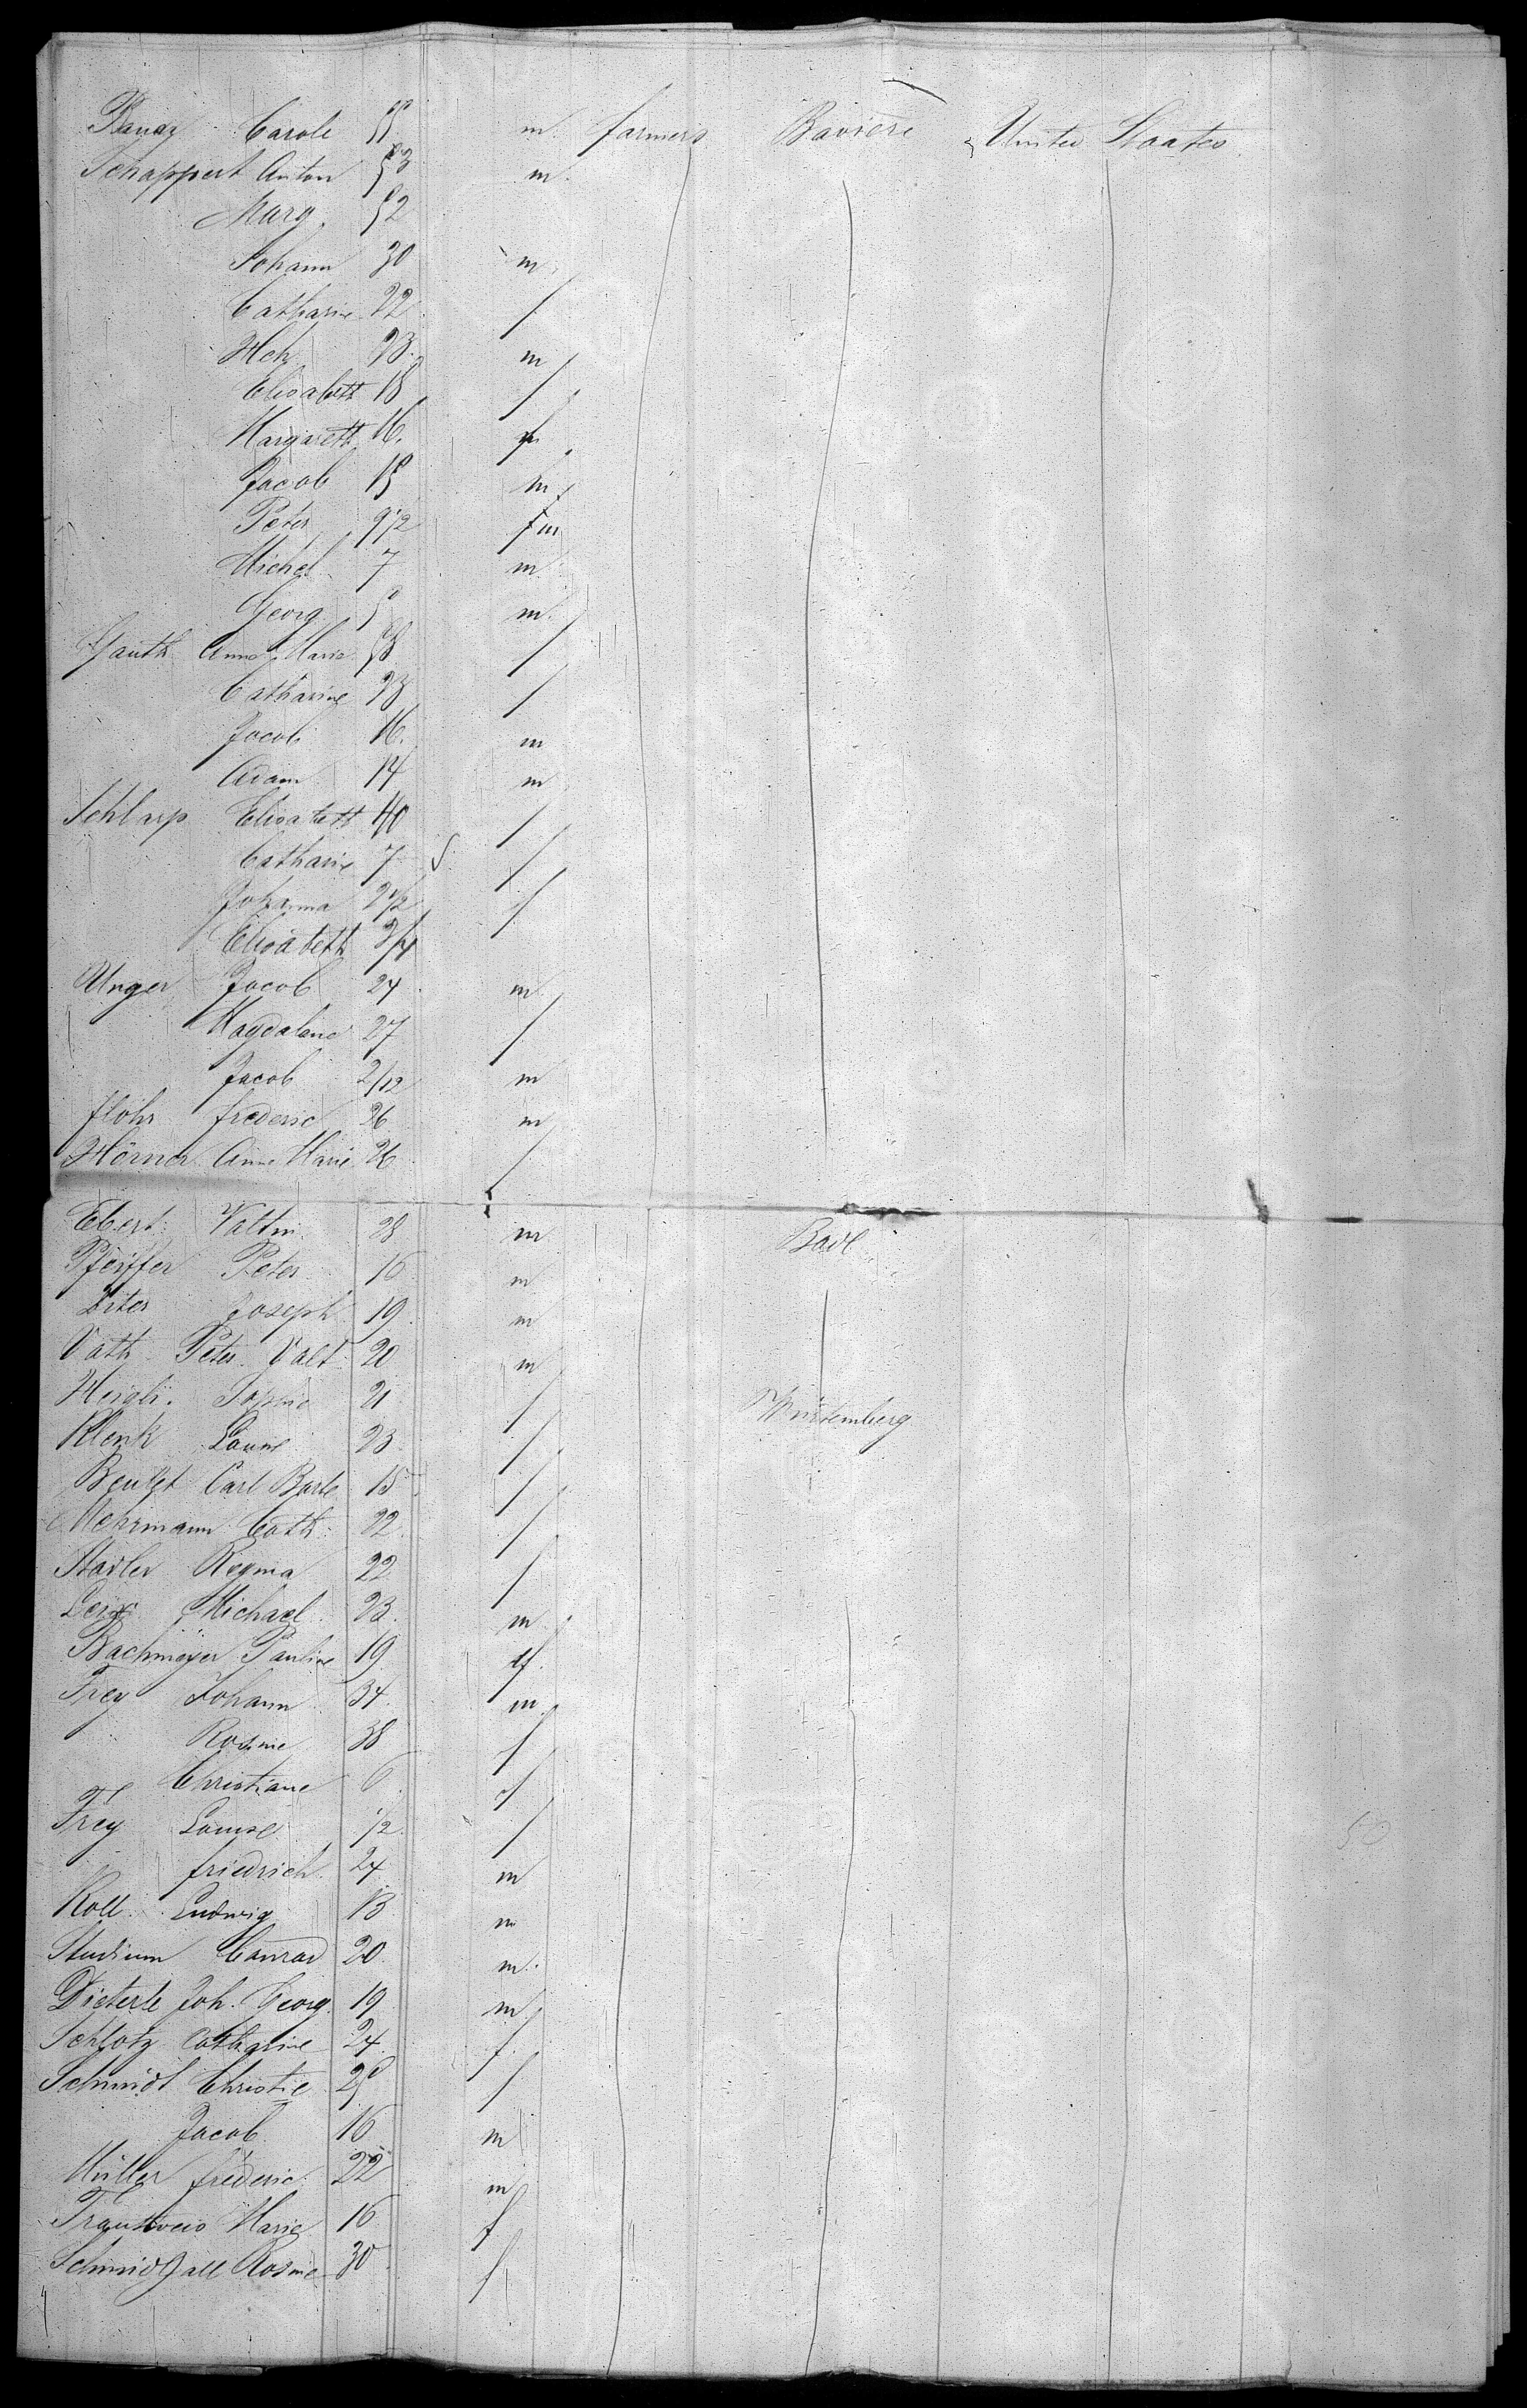 Carole 55 m. farmers Baviere United Staates
Schappert Anton 53 m.
Marg. 52
Johann 30 m
Catharine 22 f
Hch 23 m
Elisabeth 18 f
Margareth 16 f
Jacob 15 m
Peter 9 1/2 m
Michel 7 m
Georg 5 m.
Gauth Anna Marie 58 f
Catharine 23 f
Jacob 16 m
Adam 14 m
Schlarp Elisabeth 40 f
Catharine 7 f
Johanna 2 1/2 f
Elisabeth 3/4
Unger Jacob 24 m
Magdalene 27 f
Jacob 2/12 m
Flöhr frederic 26 m
Hörner Anne Marie 26 f
Ebert Valtin 28 m Bade
Pfeiffer Peter 16 m
Joseph 19 m
Vath Peter Valt 20 m
Sophie 21 f Würtemberg
Klenk Louise 23 f
Carl 15 f
Wehrmann Cath 22 f
Stadler Regina 22 f
Michael 23 m
Bachmayer Pauline 19 f.
Frey Johann 34 m
Rosine 38 f
Christiane 6 f
Frey Louise 1/2 f 50
friedrich 24 m
Koll Ludwig 13 m
Studium Conrad 20 m.
Dieterle Joh. Georg 19 m
Schlotz Catharine 24 f
Schmidt Christie 25 f
Jacob 16 m
Müller fréderic 22 m
Marie 16 f
Schmidgall Rosine 30 f